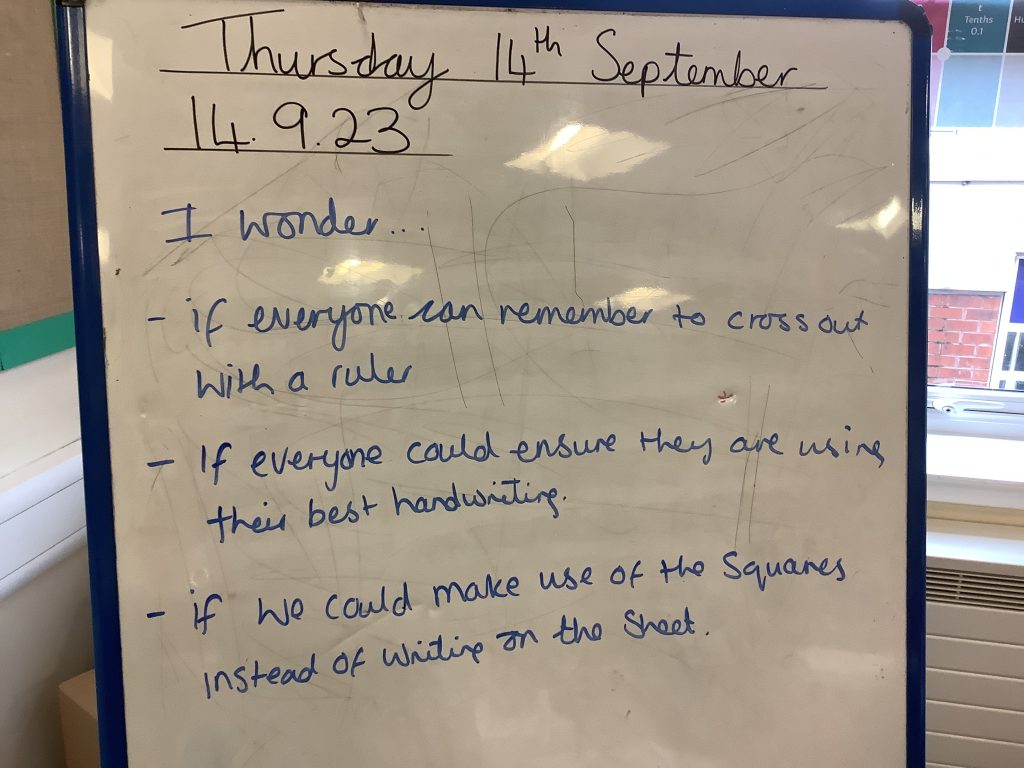 Thursday 14th September
14.9.23
I wonder...
- if everyone can remember to cross out
with a ruler
- If everyone could ensure they are using
their best handwriting.
- if we could make use of the squares
instead of writing on the sheet.
t
Tenths
0.1
Hu